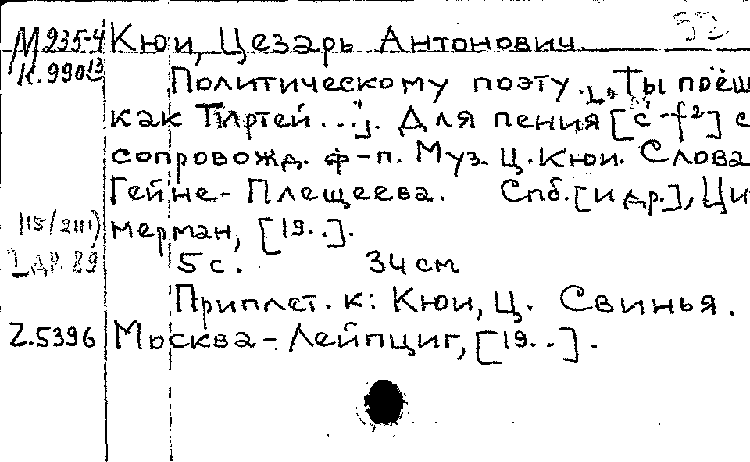 М 935-4 Кюи, Цезарь Антонович 52
К. 990 13 Политическому поэту. „Ты поёш
как Тиртей...". Для пения [c'-f²] с
сопровожд. ф-п. Муз. Ц. Кюи. Слова
Гейне-Плещеева. Спб. [и др.], Ци
мерман, [19..].
5 с. 34 см
Приплет. к: Кюи, Ц. Свинья.
Z.5396 Москва-Лейпциг, [19..].